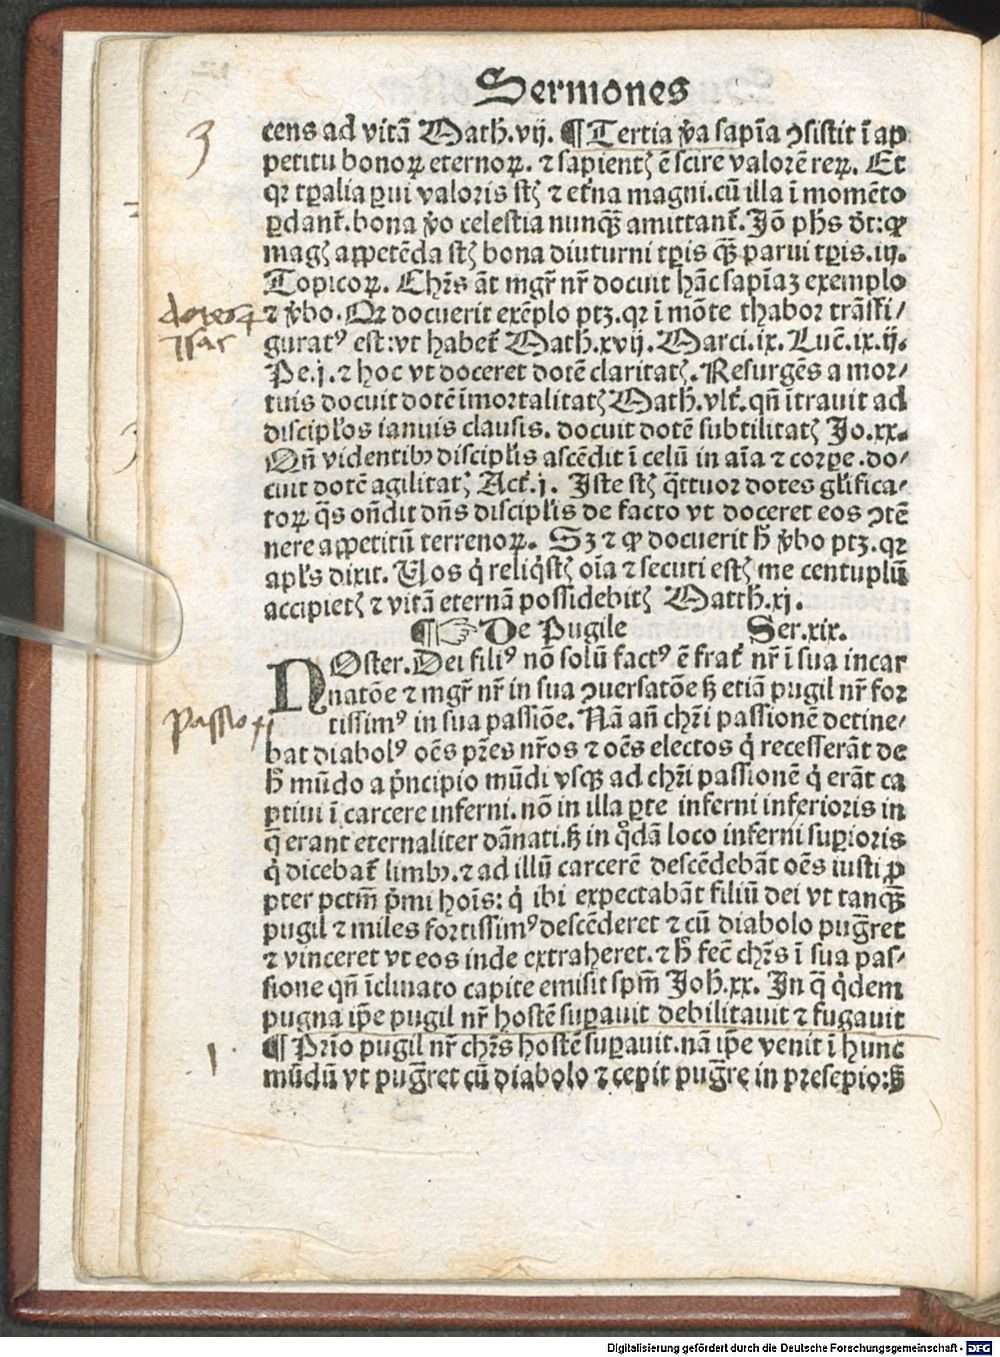 Sermones
cens ad vitã Math̃.vij. ¶ Tertia ṽa sapĩa ꝯsistit ĩ ap
petitu bonoꝝ eternoꝝ. ⁊ sapientꝭ ẽ scire valorẽ reꝝ. Et
qꝛ tꝑalia ꝑui valoris st̃ꝭ ⁊ et̃na magni. cũ illa ĩ momẽto
ꝑdant̃. bona ṽo celestia nunqᷓꝫ amittant̃. Jõ ph̃s dt̃: ꝙ
magꝭ appetẽda st̃ꝭ bona diuturni tꝑis qᷓꝫ parui tꝑis. iij.
Topicoꝝ. Chr̃s ãt mgr̃ nr̃ docuit hãc sapĩaꝫ exemplo
⁊ ṽbo. Qꝛ docuerit exẽplo ptꝫ. qꝛ ĩ mõte thabor trãsfi⸗
guratꝰ est: vt habet̃ Math̃.xvij. Marci.ix. Luc̃.ix. ij.
Pe.j. ⁊ hoc vt doceret dotẽ claritatꝭ. Resurgẽs a mor⸗
tuis docuit dotẽ ĩmortalitatꝭ Math̃.vlt̃. qñ ĩtrauit ad
discipl̃os ianuis clausis. docuit dotẽ subtilitatꝭ Jo.xx.
Qñ videntibꝰ discipl̃is ascẽdit ĩ celũ in aĩa ⁊ corꝑe. do⸗
cuit dotẽ agilitatꝭ Act̃.j. Iste st̃ꝭ q̃ttuor dotes gl̃ifica⸗
toꝝ q̃s oñdit dñs discipl̃is de facto vt doceret eos ꝯtẽ
nere appetitũ terrenoꝝ. Sꝫ ⁊ ꝙ docuerit h̃ ṽbo ptꝫ. qꝛ
apl̃s dixit. Vos q̇ reliq̇stꝭ oĩa ⁊ secuti estꝭ me centuplũ
accipietꝭ ⁊ vitã eternã possidebitꝭ Matth̃.xj.
¶☞ De Pugile Ser.xix.
NOster. Dei filiꝰ nõ solũ factꝰ ẽ frat̃ nr̃ ĩ sua incar
natõe ⁊ mgr̃ nr̃ in sua ꝯuersatõe ꝫ̃ etiã pugil nr̃ for
tissimꝰ in sua passiõe. Nã añ chr̃i passionẽ detine⸗
bat diabolꝰ oẽs pr̃es nr̃os ⁊ oẽs electos q̇ recesserãt de
h̃ mũdo a pͥncipio mũdi vsqꝫ ad chr̃i passionẽ q̇ erãt ca
ptiui ĩ carcere inferni. nõ in illa ꝑte inferni inferioris in
q̃ erant eternaliter dãnati. ꝫ̃ in qͦdã loco inferni suꝑioris
q̇ dicebat̃ limbꝰ. ⁊ ad illũ carcerẽ descẽdebãt oẽs iusti ꝓ
pter pctm̃ pͥmi hoĩs: q̇ ibi expectabãt filiũ dei vt tanqᷓꝫ
pugil ⁊ miles fortissimꝰ descẽderet ⁊ cũ diabolo pug̃ret
⁊ vinceret vt eos inde extraheret. ⁊ h̃ fec̃ chr̃s ĩ sua pas⸗
sione qñ ĩclinato capite emisit spm̃ Joh̃.xx. In q̃ q̇dem
pugna ip̃e pugil nr̃ hostẽ suꝑauit debilitauit ⁊ fugauit
¶ Pr̃io pugil nr̃ chr̃s hostẽ suꝑauit. nã ip̃e venit ĩ hunc
mũdũ vt pug̃ret cũ diabolo ⁊ cepit pug̃re in presepio: ꝫ̃
3
dotes 4
Passio
1
Digitalisierung gefördert durch die Deutsche Forschungsgemeinschaft - DFG